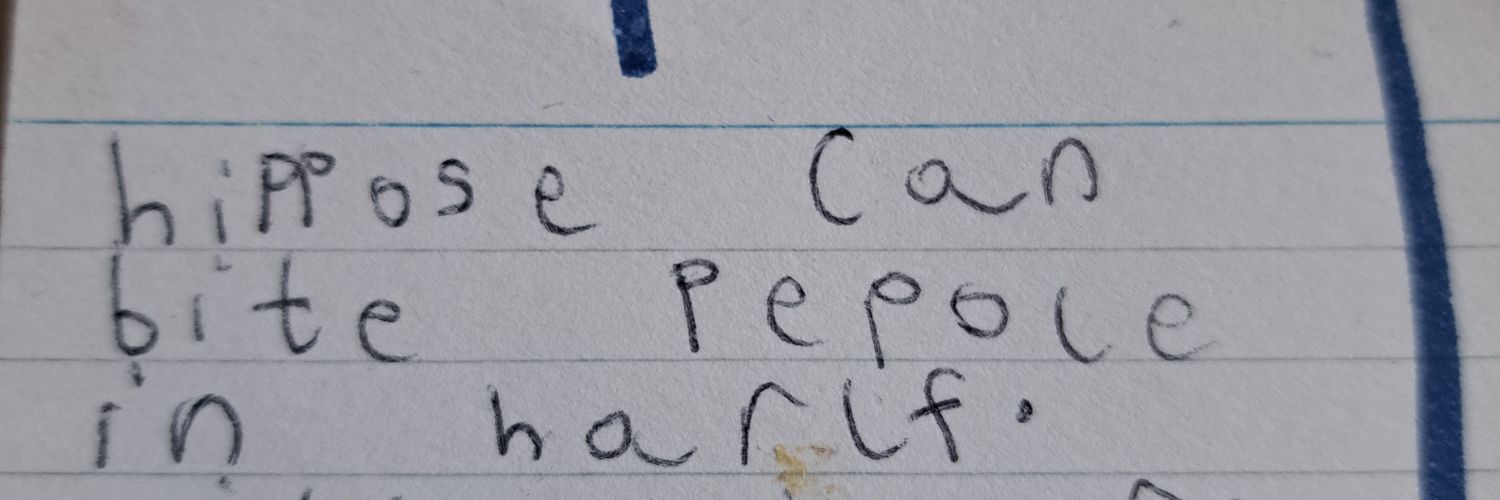 hippose can
bite pepole
in harlf.